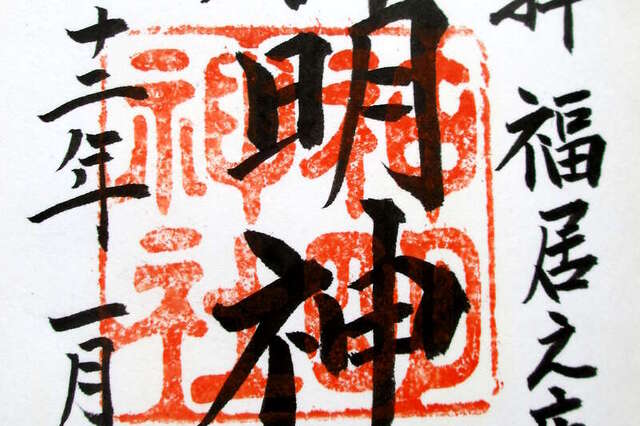 拝 福居之
明神
十二年一月
神明
神社